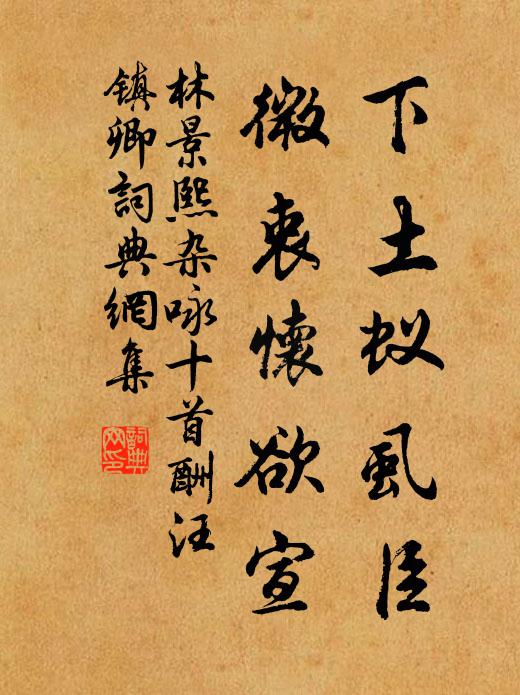 下土蚁虱臣
微衷懷欲宣
林景熙杂咏十首酬汪
镇卿詞典網集
詞典网印